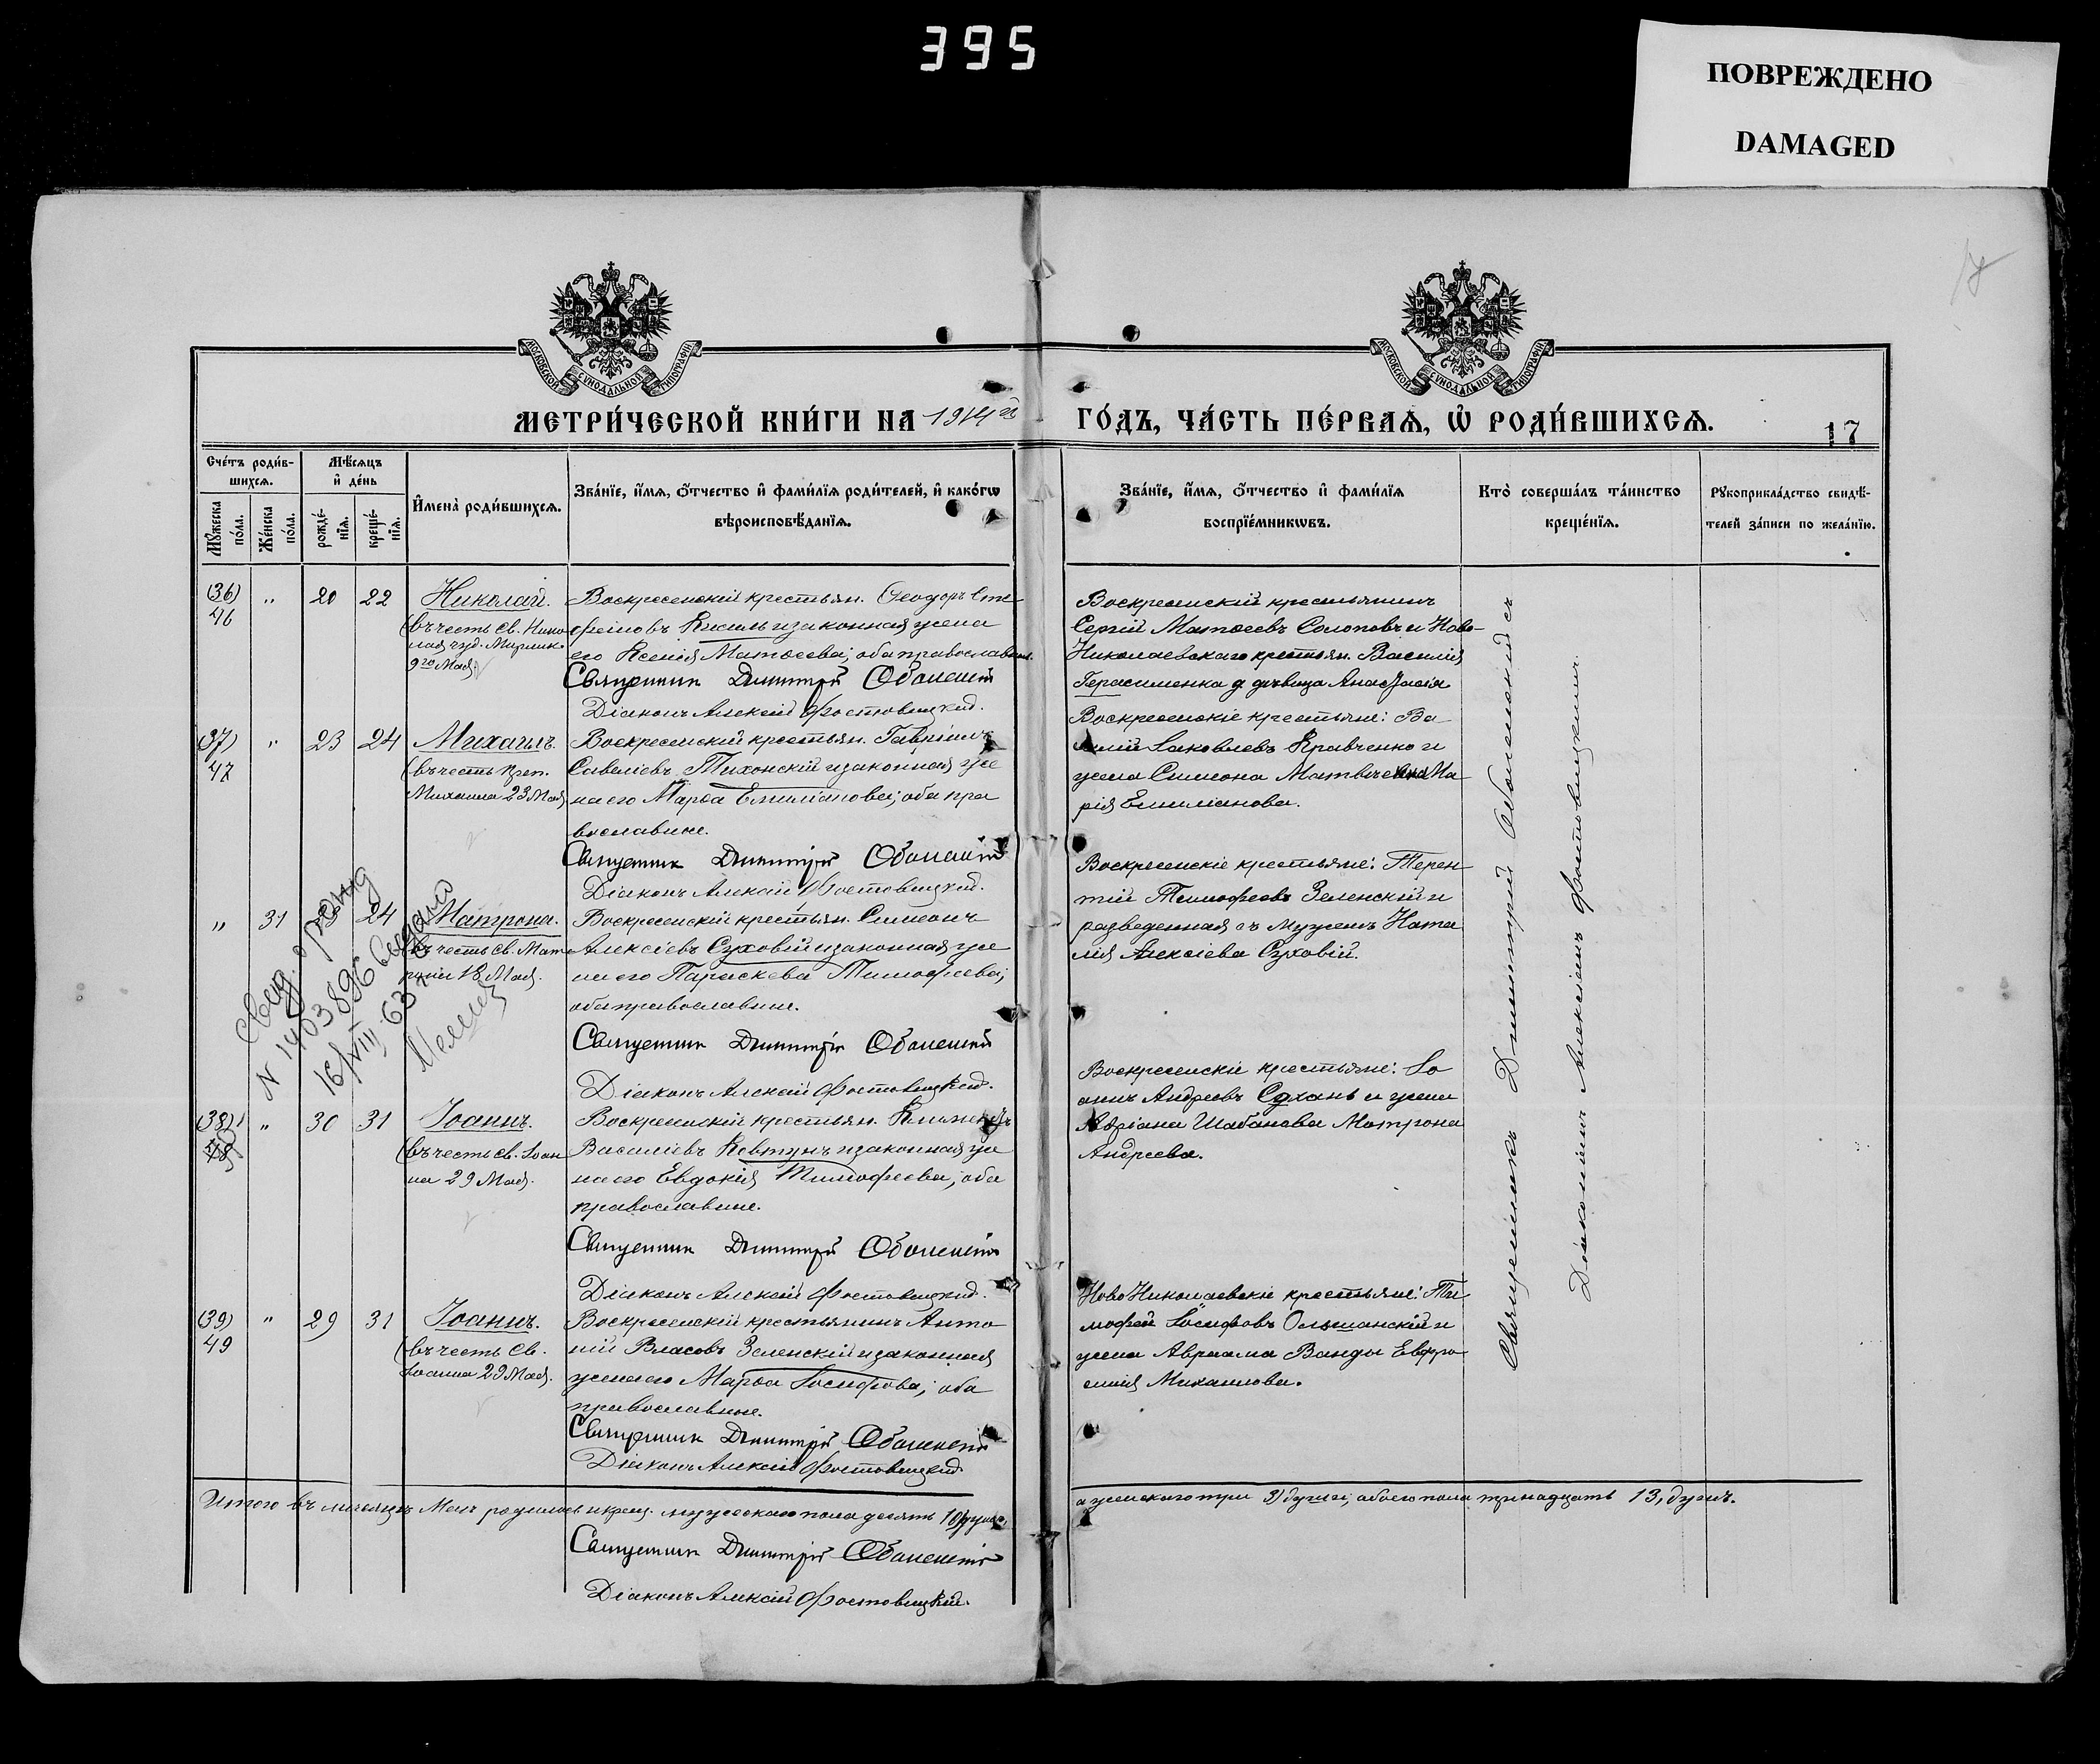 395
ПОВРЕЖДЕНО
DAMAGED
МОСКОВСКОЙ СУНОДАЛЬНОЙ ТИПОГРАФІИ
МОСКОВСКОЙ СУНОДАЛЬНОЙ ТИПОГРАФІИ
МЕТРИ́ЧЕСКОЙ КНИ́ГИ НА 1914 й
ГО́ДЪ, ЧА́СТЬ ПЕ́РВАѦ, Ѡ҆ РОДИ́ВШИХСѦ.
17
Сче́тъ роди́в-
шихсѧ.
Мꙋ́жеска по́ла.
Же́нска по́ла.
Мѣ́сѧцъ
и҆ де́нь
рожде́-
нїѧ.
креще́-
нїѧ.
И҆мена̀ роди́вшихсѧ.
Зва́нїе, и҆́мѧ, ѻ҆́тчество и҆ фами́лїѧ роди́телей, и҆ како́гѡ
вѣроисповѣ́данїѧ.
Зва́нїе, и҆́мѧ, ѻ҆́тчество и҆ фами́лїѧ
воспрїе́мникѡвъ.
Кто̀ соверша́лъ та́инство
креще́нїѧ.
Рꙋкоприкла́дство свидѣ́-
телей за́писи по жела́нїю.
(36)
46
"
20
22
Николай.
(въ честь св. Нико
лая чуд. Мирлик.
9го Мая)
Воскресенскій крестьян. Ѳеодоръ Сте
феновъ Кисиль и законная жена
его Ксенія Матѳеева; оба православные.
Священник Димитрій Оболенскій
Діаконъ Алексій Фостовецкій.
Воскресенскій крестьянинъ
Сергій Матѳеевъ Солоповъ и Ново-
Николаевскаго крестьян. Василія
Герасименка д. дѣвица Анастасія
(37)
47
"
23
24
Михаилъ.
(въ честь преп.
Михаила 23 Мая)
Воскресенскій крестьян. Гавріилъ
Савеліевъ Тихонскій и законная же
на его Марѳа Емиліанова; оба пра
вославные.
Священник Димитрій Оболенскій
Діаконъ Алексій Фостовецкій.
Воскресенскіе крестьяне: Ва
силій Іаковлевъ Кравченко и
жена Симеона Матвѣенка Ма
рія Емиліанова.
"
31
24
Матрона.
(въ честь св. Мат
роны 18 Мая.
Свид. о рожд
N 1403896 выдано
16/VIII 63 г
Воскресенскій крестьян. Симеонъ
Алексіевъ Суховій и законная же
на его Параскева Тимофеева;
оба православные.
Священник Димитрій Оболенскій
Діаконъ Алексій Фостовецкій.
Воскресенскіе крестьяне: Терен
тій Тимофеевъ Зеленскій и
разведенная съ мужемъ Ната
лія Алексіева Суховій.
(38)
48
"
30
31
Іоаннъ.
(въ честь св. Іоан
на 29 Мая.
Воскресенскій крестьян. Климентъ
Василіевъ Ковтунъ и законная же
на его Евдокія Тимофеева; оба
православные.
Священник Димитрій Оболенскій
Діаконъ Алексій Фостовецкій.
Воскресенскіе крестьяне: Іо
аннъ Андреевъ Сухань и жена
Адріана Шабанова Матрона
Андреева.
(39)
49
"
29
31
Іоаннъ.
(въ честь Св.
Іоанна 29 Мая).
Воскресенскій крестьянинъ Анто
ній Власовъ Зеленскій и законная
жена его Марѳа Іосифова; оба
православные.
Священник Димитрій Оболенскій
Діаконъ Алексій Фостовецкій
Ново Николаевскіе крестьяне: Ти
мофей Іосифовъ Ольшанскій и
жена Авраама Ванды Евфро
синія Михаилова.
Священникъ Димитрій Оболенскій съ
Діакономъ Алексіемъ Фостовецкимъ.
Итого въ мѣсяцѣ Маѣ родилось и крещ. мужескаго пола десять 10) душъ,
а женскаго три 3) души; обоего пола тринадцать 13, душъ.
Священник Димитрій Оболенскій
Діаконъ Алексій Фостовецкій.